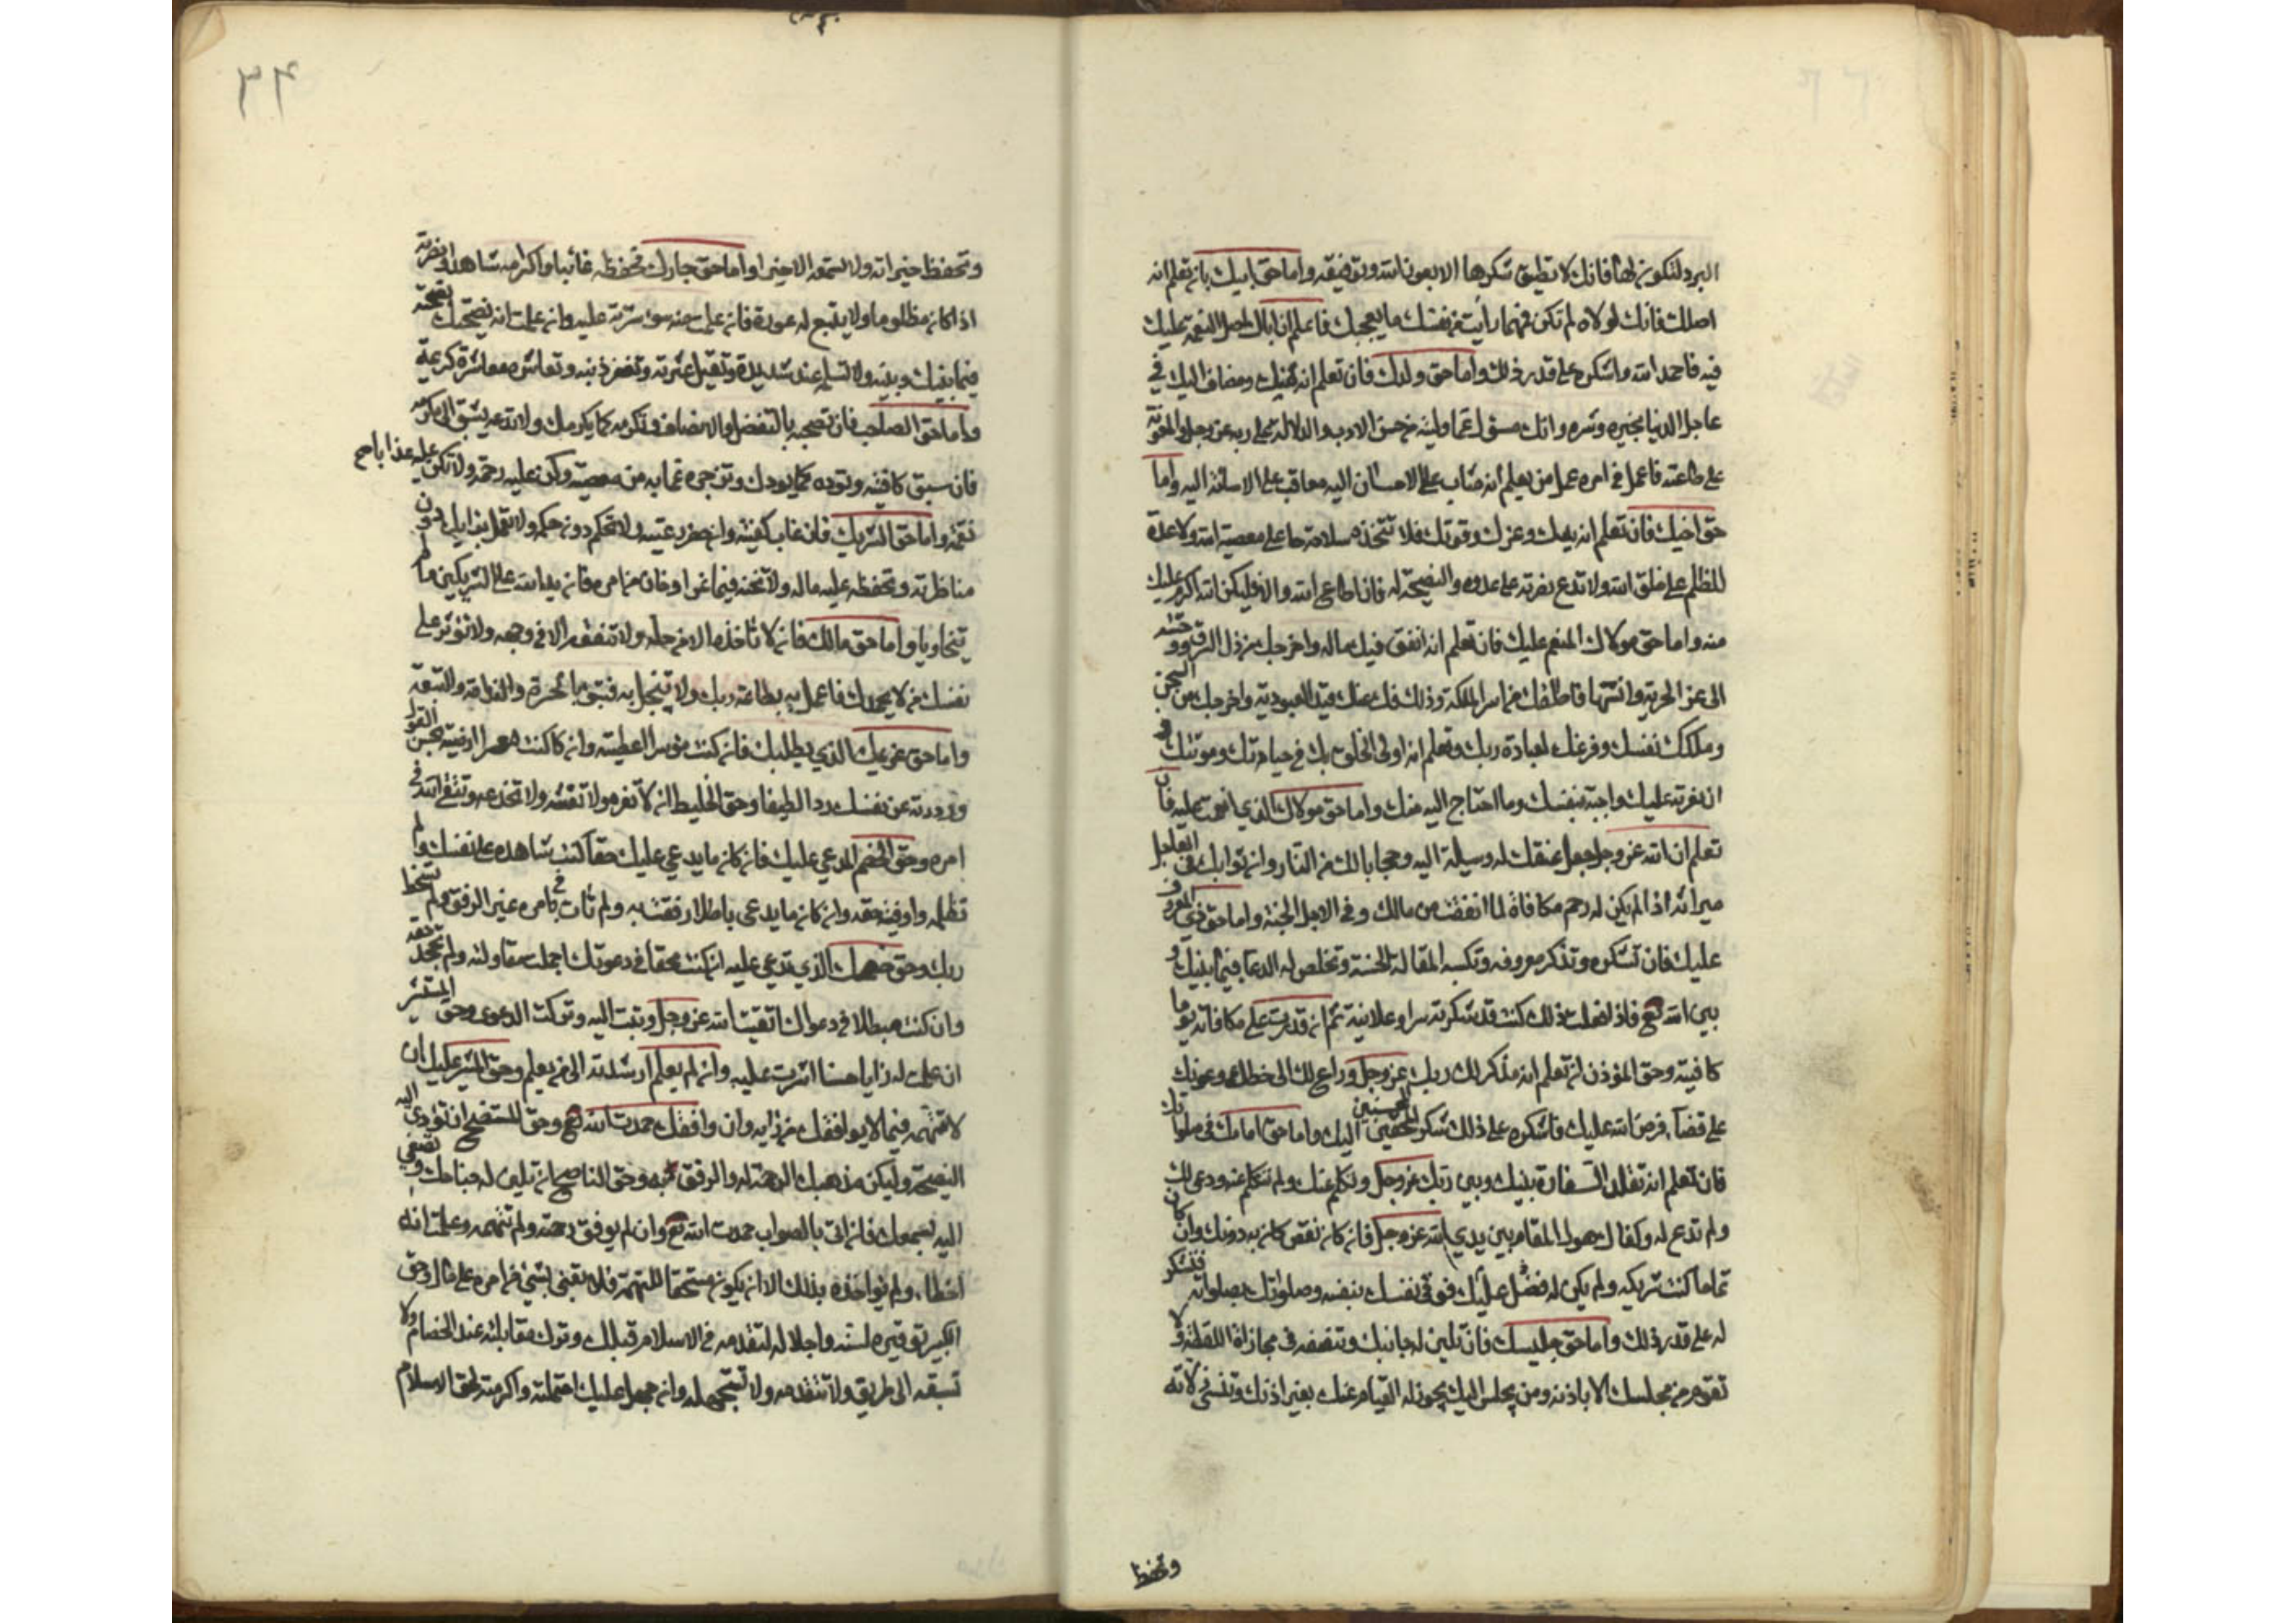 البرد لتكون لها فانك لا تطيق شكرها الا بعون الله وتوفيقه واما حق ابيك بان تعلم انه
اصلك فانك لولاه لم تكن فمهما رأيت من نفسك ما يعجبك فاعلم ان اباك اصل النعمة عليك
فيه فاحمد الله واشكره على قدر ذلك واما حق ولدك فان تعلم انه منك ومضاف اليك في
عاجل الدنيا بخيره وشره وانك مسؤل عما وليته من حسن الادب والدلالة على ربه عز وجل والمعونة
على طاعته فاعمل في امره عمل من يعلم انه مثاب على الاحسان اليه معاقب على الاسائة اليه واما
حق اخيك فان تعلم انه يدك وعزك وقوتك فلا تتخذه سلاحا على معصية الله ولا عدة
للظلم على خلق الله ولا تدع نصرته على عدوه والنصيحة له فان اطاع الله والا فليكن الله اكرم عليك
منه واما حق مولاك المنعم عليك فان تعلم انه انفق فيك ماله واخرجك من ذل الرق ووحشته
الى عز الحرية وانسها فاطلقك من اسر الملكة وفك عنك قيد العبودية واخرجك من السجن
وملكك نفسك وفرغك لعبادة ربك وتعلم انه اولى الخلق بك في حياتك وموتك و
ان نصرته عليك واجبة بنفسك وما احتاج اليه منك واما حق مولاك الذي انعمت عليه فان
تعلم ان الله عز وجل جعل عتقك له وسيلة اليه وحجابا لك من النار وان ثوابك في العاجل
ميراثه اذا لم يكن له رحم مكافاة لما انفقت من مالك وفي الاجل الجنة واما حق ذي المعروف
عليك فان تشكره وتذكر معروفه وتكسبه المقالة الحسنة وتخلص له الدعا فيما بينك و
بين الله تع فاذا فعلت ذلك كنت قد شكرته سرا وعلانية ثم ان قدرت على مكافاته يوما
كافيته وحق المؤذن ان تعلم انه مذكر لك ربك عز وجل وداع لك الى حظك وعونك
على قضاء فرض الله عليك فاشكره على ذلك شكر المحسنين اليك واما حق امامك في صلوتك
فان تعلم انه تقلد السفارة بينك وبين ربك عز وجل وتكلم عنك ولم تتكلم عنه ودعى لك
ولم تدع له وكفاك هول المقام بين يدي الله عز وجل فان كان نقص كان به دونك وان كان
تماما كنت شريكه ولم يكن له عليك فضل فوقى نفسك بنفسه وصلوتك بصلوته فتشكر
له على قدر ذلك واما حق جليسك فان تلين له جانبك وتنصفه في مجازاة اللفظ ولا
تقوم من مجلسك الا باذنه ومن يجلس اليك يجوز له القيام عنك بغير اذنك وتنسى زلاته
وتحفظ
وتحفظ خيراته ولا تسمعه الا خيرا واما حق جارك تحفظه غائبا واكرامه شاهدا ونصرته
اذا كان مظلوما ولا يتبع له عورة فان علمت منه سوء سترته عليه وان علمت انه نصيحتك نصحته
فيما بينك وبينه ولا تسلمه عند شديدة وتقيل عثرته وتغفر ذنبه وتعاشره معاشرة كريمة
واما حق الصاحب فان تصحبه بالتفضل والانصاف وتكرمه كما يكرمك ولا تدعه يسبق الى مكرمة
فان سبق كافيته وتوده كما يودك وتزجره عما به من معصية وكن عليه رحمة ولا تكن عليه عذابا صح
نقمة واما حق الشريك فان غاب كفيته وان حضر رعيته ولا تحكم دون حكمه ولا تعمل برايك دون
مناظرته وتحفظ عليه ماله ولا تخنه فيما عز او هان من امره فان يد الله على الشريكين ما لم
يتخاونا واما حق مالك فان لا تاخذه الا من حله ولا تنفقه الا في وجهه ولا تؤثر على
نفسك من لا يحمدك فاعمل به بطاعة ربك ولا تبخل به فتبوء بالحسرة والندامة والتبعة
واما حق غريمك الذي يطلبك فان كنت موسرا اعطيته وان كنت معسرا ارضيته بحسن القول
ورددته عن نفسك ردا لطيفا وحق الخليط ان لا تغره ولا تغشه ولا تخدعه وتتقى الله في
امره وحق الخصم المدعي عليك فان كان ما يدعي عليك حقا كنت شاهده على نفسك ولم
تظلمه واوفيته حقه وان كان ما يدعى باطلا رفقت به ولم تات في امره غير الرفق ولم تسخط
ربك وحق خصمك الذي تدعى عليه ان كنت محقا في دعوتك اجملت مقاولته ولم تجحد حقه
وان كنت مبطلا في دعواك اتقيت الله عز وجل وتبت اليه وتركت الدعوى وحق المستشير
ان علمت له رايا حسنا اشرت عليه وان لم يعلم ارشدته الى من يعلم وحق المشير عليك ان
لا تتهمه فيما لا يوافقك من رايه وان وافقك حمدت الله تع وحق المستنصح ان تؤدي اليه
النصيحة وليكن مذهبك الرحمة له والرفق به وحق الناصح ان تلين له جناحك وتصغي
اليه بسمعك فان اتى بالصواب حمدت الله تع وان لم يوفق رحمته ولم تتهمه وعلمت انه
اخطاء ولم تواخذه بذلك الا ان يكون مستحقا للتهمة فلا تعبى بشئ من امره على حال وحق
الكبير توقيره لسنه واجلاله لتقدمه في الاسلام قبلك وترك مقابلته عند الخصام ولا
تسبقه الى طريق ولا تتقدمه ولا تستجهله وان جهل عليك احتملته واكرمته لحق الاسلام